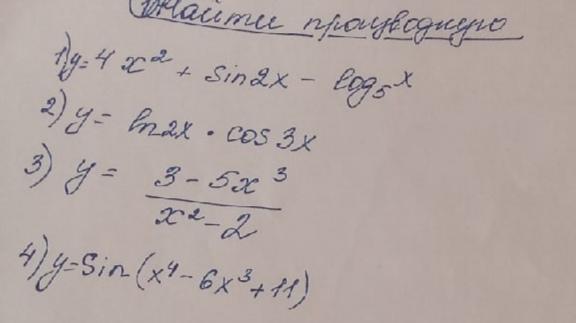 Найти производную
1) y = 4x² + sin2x - log₅x
2) y = ln2x · cos3x
3) y = 3 - 5x³
x² - 2
4) y = Sin(x⁴ - 6x³ + 11)